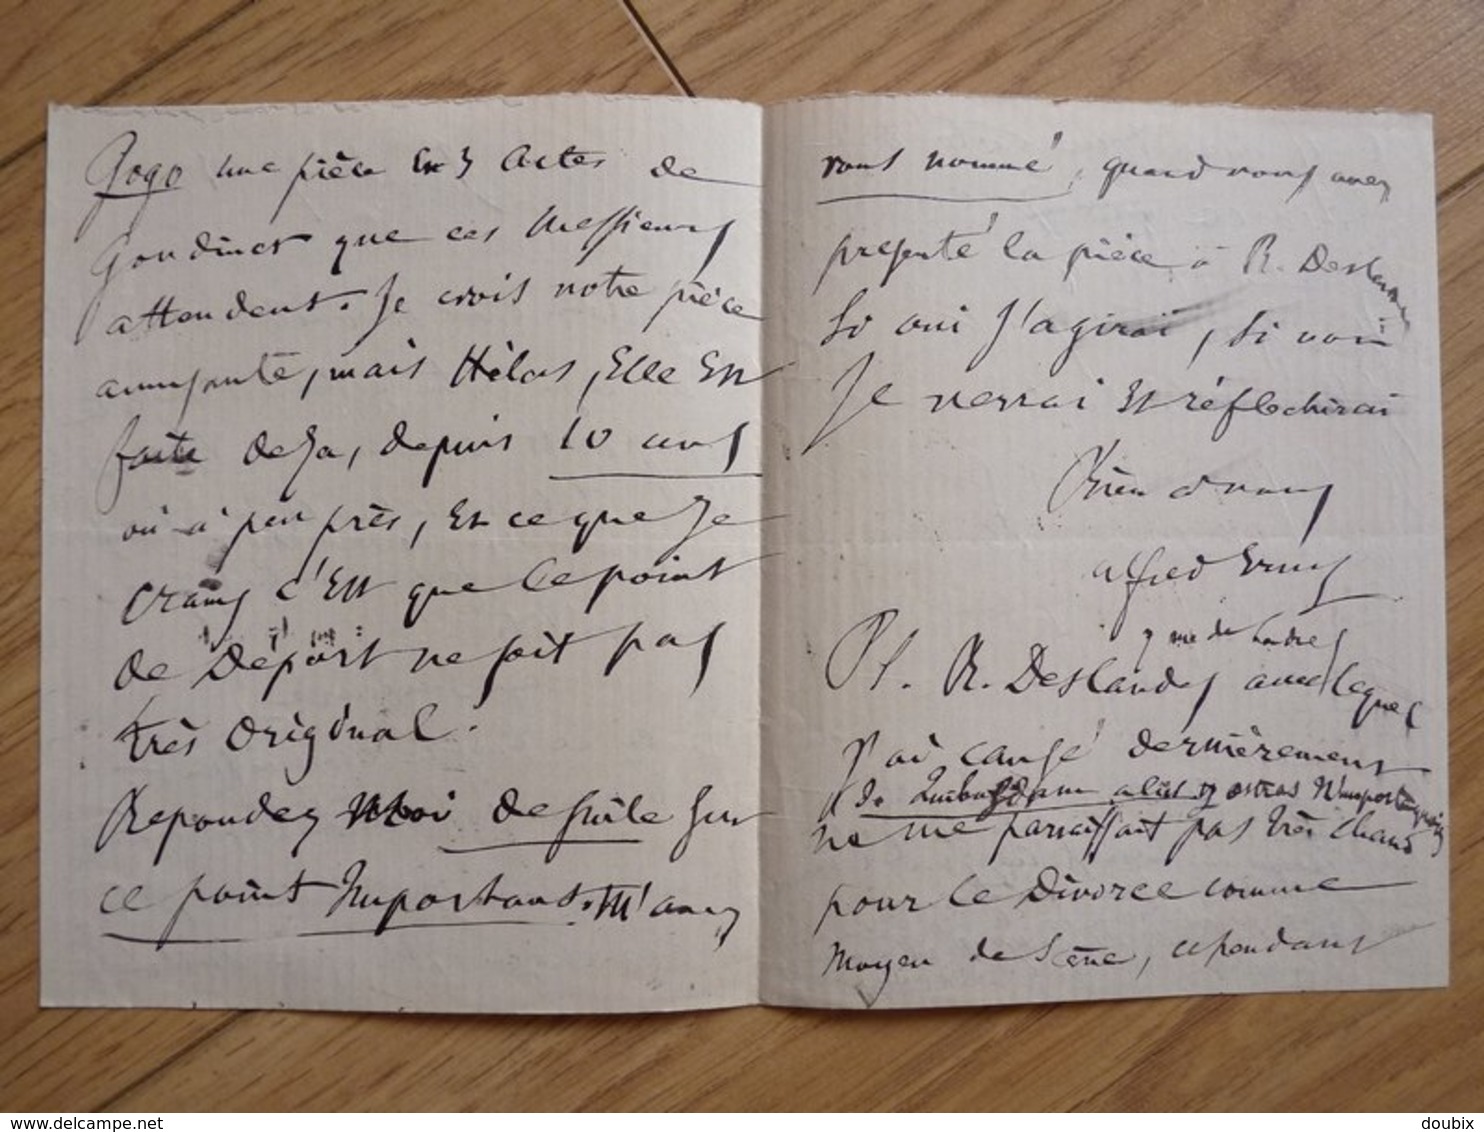 Gogo une pièce en 3 Actes de
Gondinet que ces Messieurs
attendent. Je crois notre pièce
amusante, mais Hélas, Elle Est
faite deja, depuis 10 ans
ou à peu près, Et ce que Je
crains c'Est que le point
de Départ ne soit pas
très Original.
Repondez moi de suite sur
ce point Important. M'avez
vous nommé, quand vous avez
presenté la pièce à R. Deslandes
Si oui J'agirai, Si non
Je verrai Et réflechirai
Bien à vous
Alfred
PS. R. Deslandes avec lequel
J'ai causé dernièrement
ne me paraissait pas très chaud
pour le Divorce comme
moyen de Scène, cependant
delcampe.net
doubix